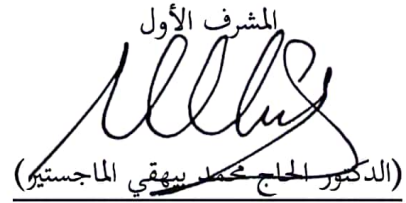 المشرف الأول
(الدكتور الحاج محمد بيهقي الماجستير)